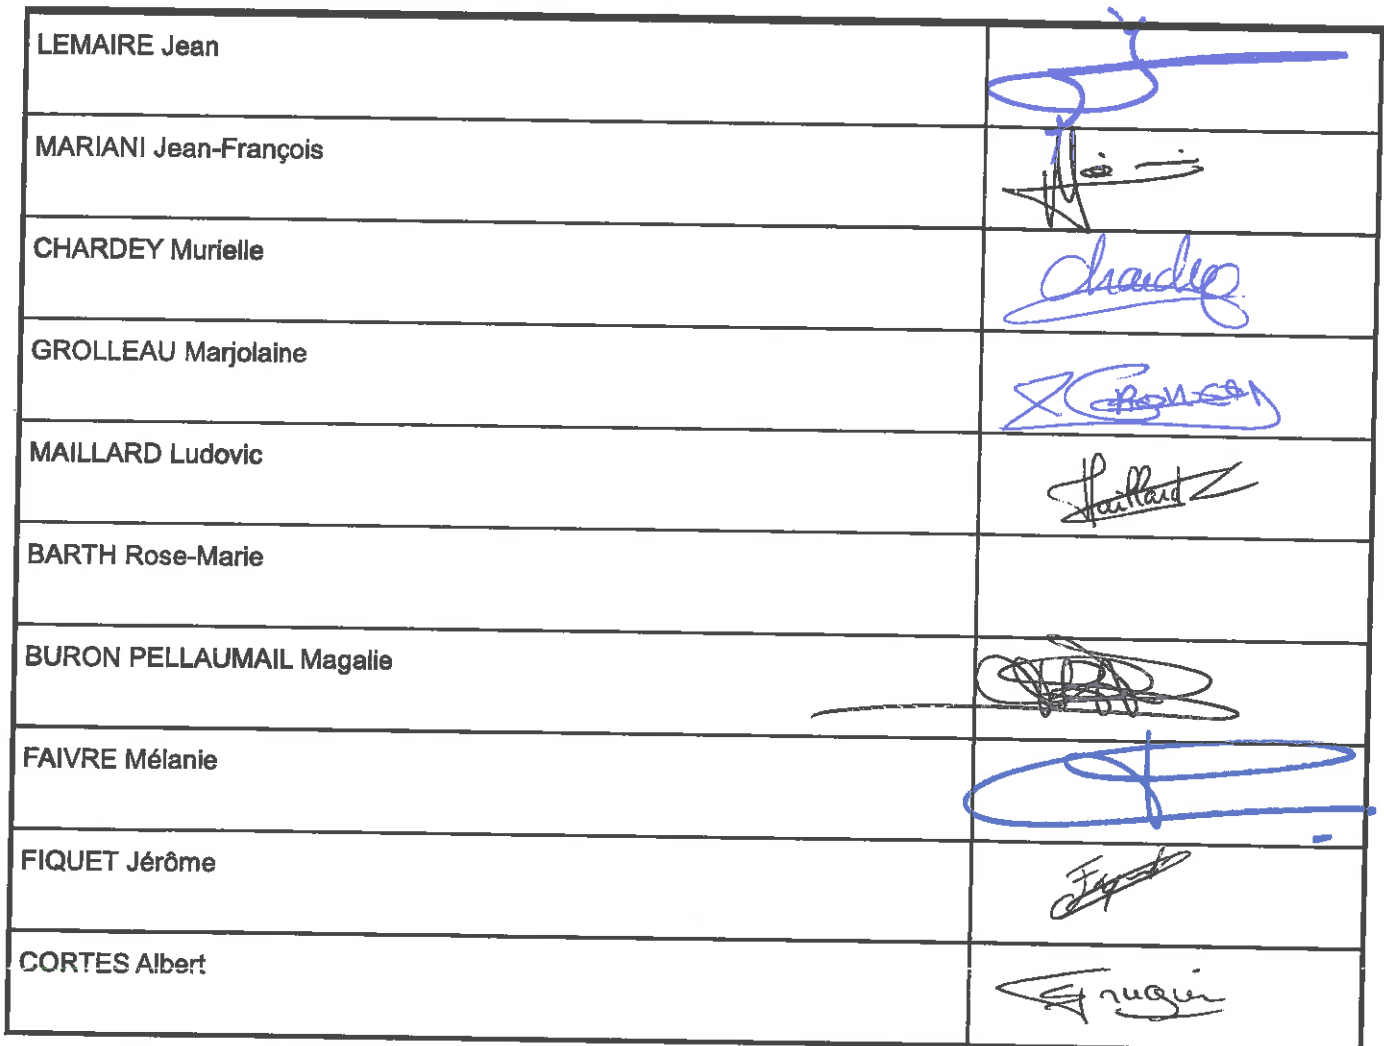 LEMAIRE Jean
MARIANI Jean-François
CHARDEY Murielle
Chardey
GROLLEAU Marjolaine
MAILLARD Ludovic
Maillard
BARTH Rose-Marie
BURON PELLAUMAIL Magalie
FAIVRE Mélanie
FIQUET Jérôme
CORTES Albert